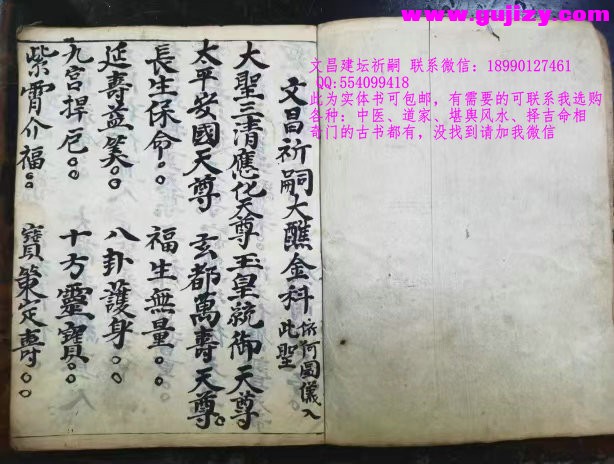 www.gujizy.com
文昌建坛祈嗣 联系微信：18990127461
QQ:554099418
此为实体书可包邮，有需要的可联系我选购
各种：中医、道家、堪舆风水、择吉命相
奇门的古书都有，没找到请加我微信
文昌祈嗣大醮金科 依河图儀入此聖
大聖三清應化天尊 玉皇統御天尊
太平安國天尊 玄都萬壽天尊
長生保命。。 福生無量。。
延壽益筭。。 八卦護身。。
九宮捍厄。。 十方靈寶。。
紫霄介福。。 寶策定壽。。